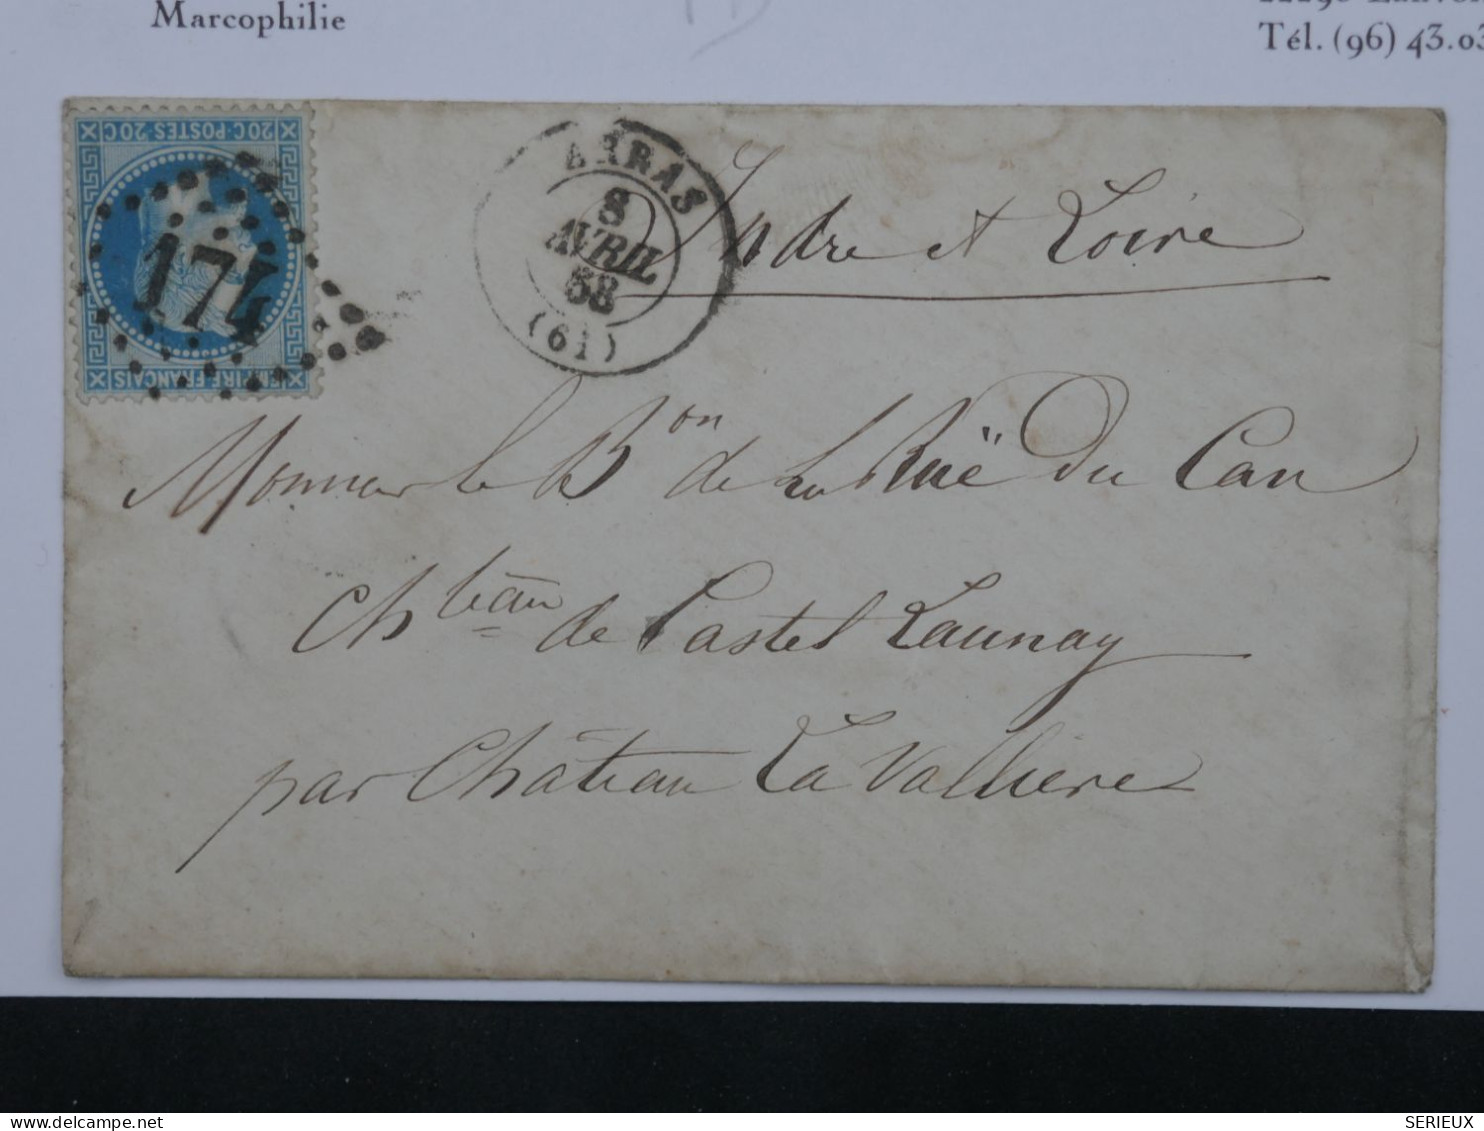 Marcophilie
Tél. (96) 43.03
20C·POSTES·20C
EMPIRE FRANÇAIS
174
ARRAS
8
AVRIL
68
(61)
Indre et Loire
Monsieur le Bon de La Ruë Du Can
Chteau de Castel Launay
par Château La Vallière
SERIEUX